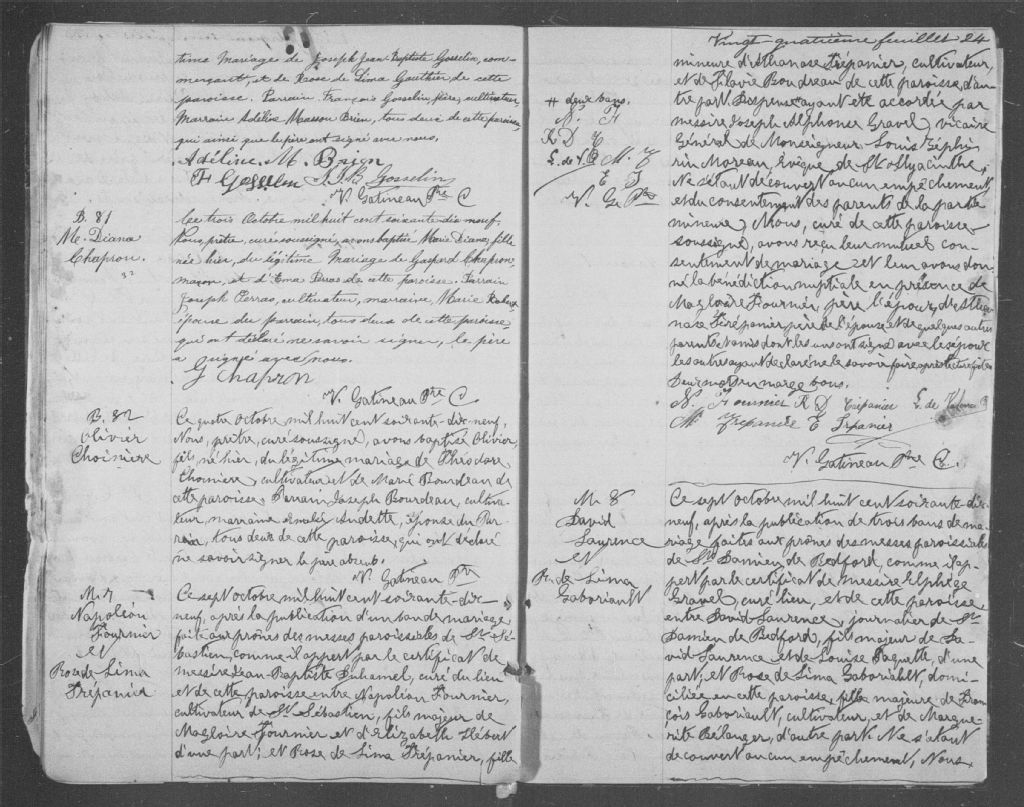 time Mariage de Joseph Jean-Baptiste Gosselin, com-
merçant, et de Rose de Lima Gauthier de cette
paroisse. Parrain François Gosselin, père, cultivateur,
Marraine Adéline Masson Brien, tous deux de cette paroisse,
qui ainsi que le père ont signé avec nous.
Adéline. M. Brien
F Gosselin J. J. B. Gosselin
N. Gatineau Ptre C
B. 81
M. Diana
Chapron.
Le trois Octobre mil huit cent soixante dix neuf.
Nous, prêtre, curé soussigné, avons baptisé Marie Diana, fille
née hier, du légitime Mariage de Gaspard Chapron
maçon, et d'Ema Perras de cette paroisse. Parrain
Joseph Perras, cultivateur, marraine, Marie
épouse du parrain, tous deux de cette paroisse,
qui ont déclaré ne savoir signer, le père
a signé avec nous.
G Chapron
N. Gatineau Ptre C
B. 82
Olivier
Choinière
Ce quatre Octobre mil huit cent soixante-dix-neuf,
Nous, prêtre, curé soussigné, avons baptisé Olivier,
fils, né hier, du légitime mariage de Théodore
Choiniere, cultivateur et de Marie Bourdeau de
cette paroisse. Parrain Joseph Bourdeau, cultiva-
teur, marraine Audette, épouse du Par-
rain, tous deux de cette paroisse, qui ont déclaré
ne savoir signer le père absent.
N. Gatineau Ptre
M. 7
Napoléon
Fournier
et
Rose de Lima
Trépanier
Ce sept octobre mil huit cent soixante-dix-
neuf, après la publication d'un ban de mariage
faite aux prônes des messes paroissiales de St. Sé-
bastien, comme il appert par le certificat de
messire Jean-Baptiste Duhamel, curé du lieu
et de cette paroisse entre Napoléon Fournier,
cultivateur de St. Sébastien, fils majeur de
Magloire Fournier et d'Elizabeth Hébert
d'une part; et Rose de Lima Trépanier, fille
Vingt-quatrième feuillet 24
mineure d'Athanase Trépanier, cultivateur,
et de Flavie Boudreau de cette paroisse, d'au-
tre part. Dispense ayant été accordée par
messire Joseph Alphonse Gravel, vicaire
Général de Monseigneur Louis Zéphi-
rin Moreau, Evêque de St Hyacinthe,
Ne s'étant découvert aucun empêchement
et du consentement des parents de la partie
mineure, Nous, curé de cette paroisse
soussigné, avons reçu leur mutuel con-
sentement de mariage et leur avons don-
né la bénédiction nuptiale en présence de
Magloire Fournier, père l'époux, d'Atha-
nase Trépanier, père de l'épouse et de quelques autres
parents et amis dont les uns ont signé avec l'époux
les autres ayant déclaré ne le savoir faire après lecture faite
Deux mots en marge bons.
# deux bans.
N. F
R D T
L. de V. B M. T
E T
N. G. Ptre
N. Fournier R D Trépanier L. de B
M. Trépanier E Trépanier
N. Gatineau Ptre C.
M. 8
David
Laurence
et
Rse de Lima
Gaboriault
Ce sept Octobre mil huit cent soixante-dix-
neuf, après la publication de trois bans de ma-
riage faites aux prônes des messes paroissiales
de St. Damien de Bedford, comme il ap-
pert par le certificat de messire Elphège
Gravel, curé lieu, et de cette paroisse
entre David Laurence, journalier de St.
Damien de Bedford, fils majeur de Da-
vid Laurence et de Louise Paquette, d'une
part, et Rose de Lima Gaboriault, domi-
ciliée en cette paroisse, fille majeure de Fran-
çois Gaboriault, cultivateur, et de Margue-
rite Bélanger, d'autre part. Ne s'étant
découvert aucun empêchement, Nous